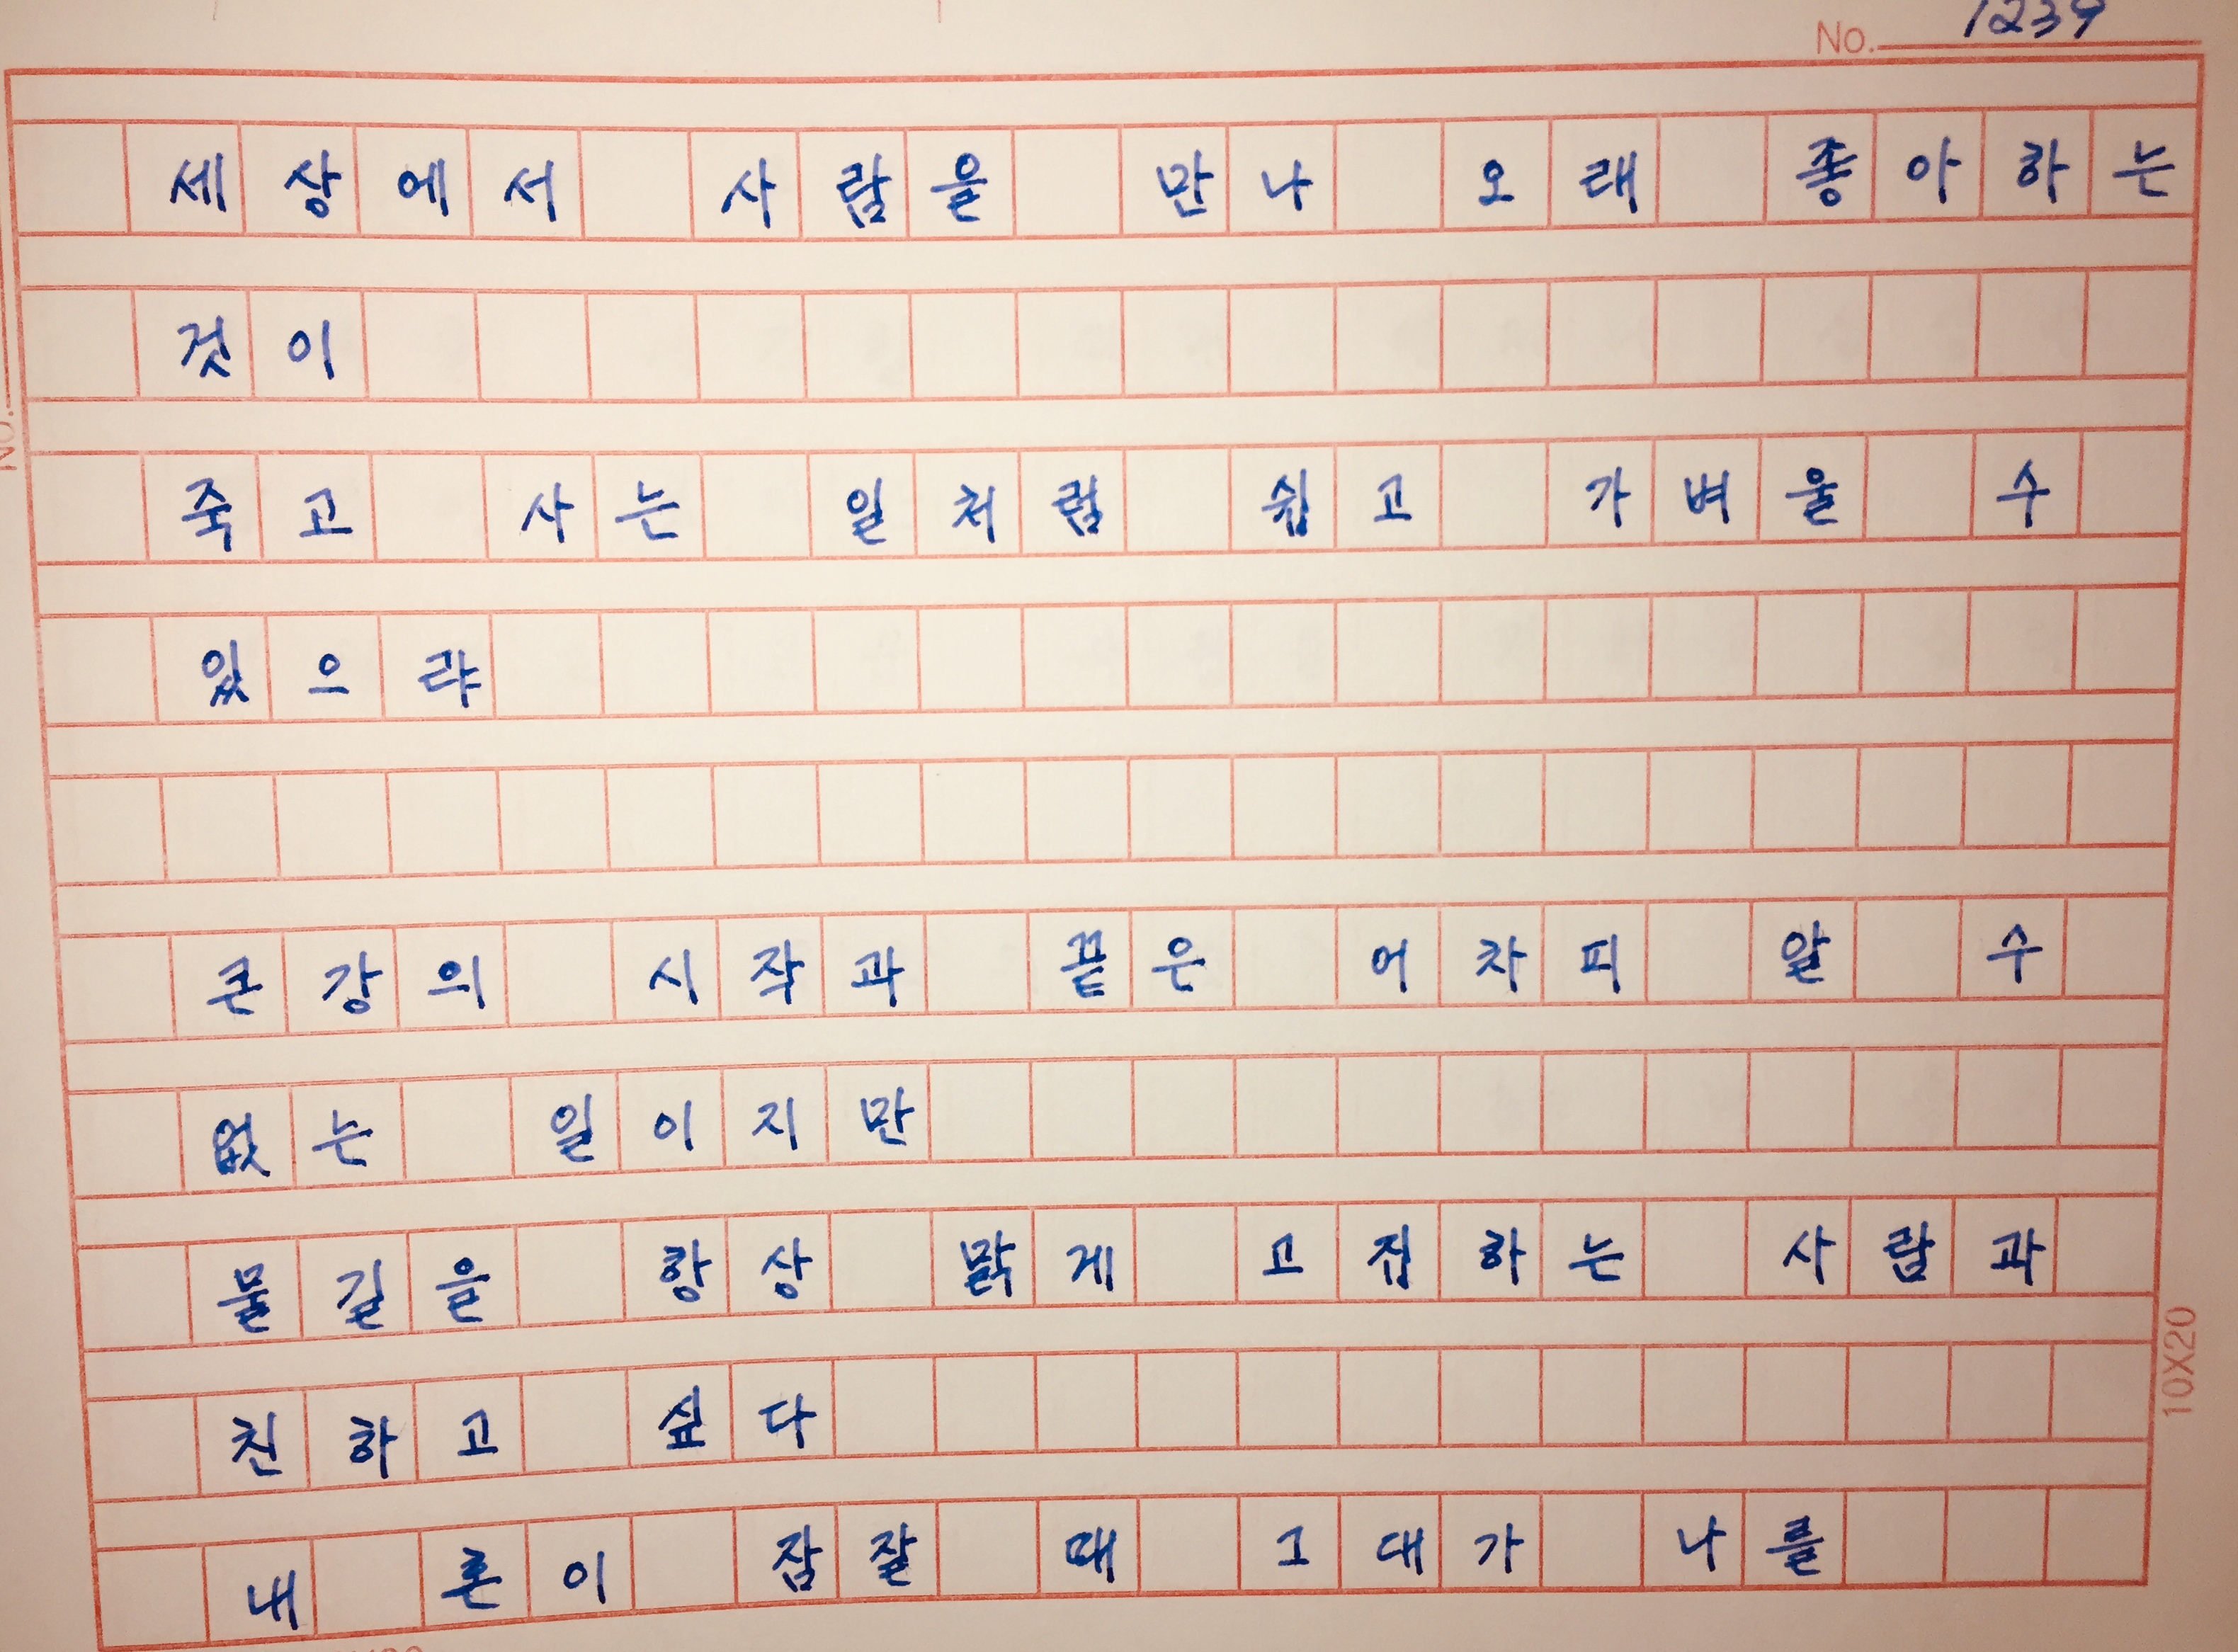 No. 1239
세상에서 사람을 만나 오래 좋아하는
것이
죽고 사는 일처럼 쉽고 가벼울 수
있으랴
큰강의 시작과 끝은 어차피 알 수
없는 일이지만
물길을 항상 맑게 고집하는 사람과
친하고 싶다
내 혼이 잠잘 때 그대가 나를
10X20
No.